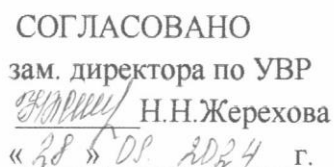 СОГЛАСОВАНО
зам. директора по УВР
Н.Н.Жерехова
« 28 » 08. 2024 г.